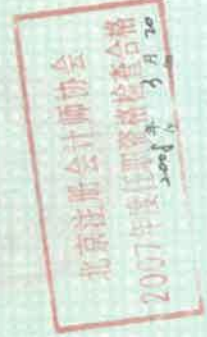 北京注册会计师协会
2007年度任职资格检查合格
2008年3月20